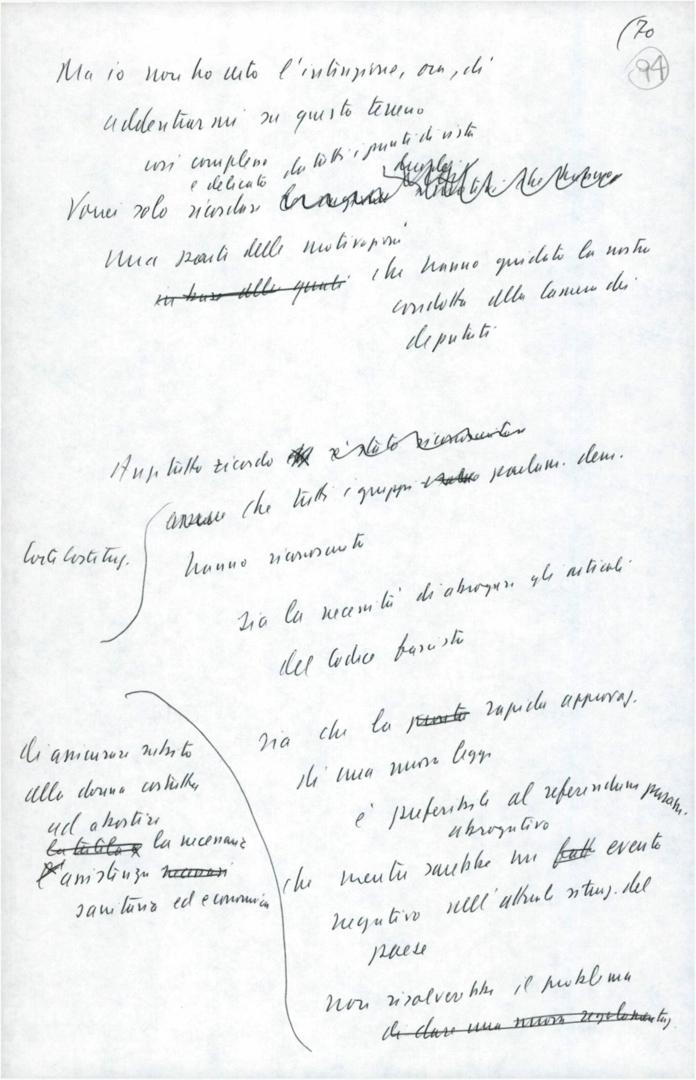 (70
94
Ma io non ho certo l'intenzione, ora, di
addentrarmi su questo terreno
così complesso da tutti i punti di vista
e delicato
Vorrei solo ricordare
una parte delle motivazioni
in base alle quali che hanno guidato la nostra
condotta alla Camera dei
deputati
Anzitutto ricordo è stato riconosciuto
che tutti i gruppi parlam. dem.
Corte Costituz.
hanno riconosciuto
sia la necessità di abrogare gli articoli
del Codice fascista
sia che la rapida approvaz.
di una nuova legge
è preferibile al referendum
abrogativo
che mentre sarebbe un fatto evento
negativo nell'attuale situaz. del
paese
non risolverebbe il problema
di dare una nuova regolamentaz.
di assicurare subito
alla donna costretta
ad abortire
la tutela la necessaria
l'assistenza
sanitaria ed economica